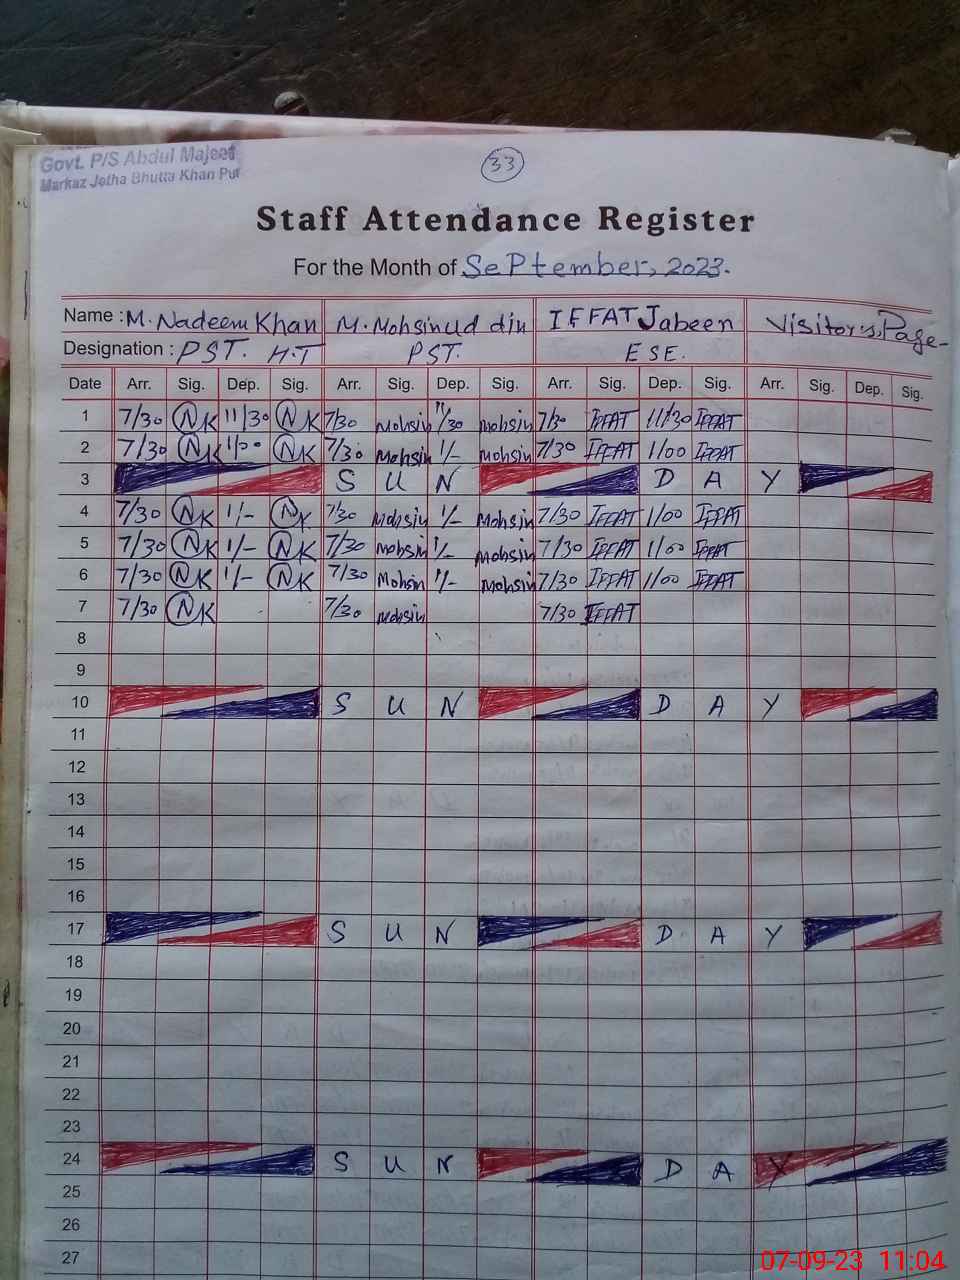 Govt. P/S Abdul Majeed
Markaz Jetha Bhutta Khan Pur
33
Staff Attendance Register
For the Month of SePtember, 2023.
Name : M. Nadeem Khan M. Mohsinud din IFFAT Jabeen Visitor's, Page
Designation : PST. H.T PST. ESE.
Date Arr. Sig. Dep. Sig. Arr. Sig. Dep. Sig. Arr. Sig. Dep. Sig. Arr. Sig. Dep. Sig.
1 7/30 NK 11/30 NK 7/30 Mohsin 11/30 Mohsin 7/30 IFFAT 11/30 IFFAT
2 7/30 NK 1/00 NK 7/30 Mohsin 1/- Mohsin 7/30 IFFAT 1/00 IFFAT
3 S U N D A Y
4 7/30 NK 1/- NK 7/30 Mohsin 1/- Mohsin 7/30 IFFAT 1/00 IFFAT
5 7/30 NK 1/- NK 7/30 Mohsin 1/- Mohsin 7/30 IFFAT 1/00 IFFAT
6 7/30 NK 1/- NK 7/30 Mohsin 1/- Mohsin 7/30 IFFAT 1/00 IFFAT
7 7/30 NK 7/30 Mohsin 7/30 IFFAT
8
9
10 S U N D A Y
11
12
13
14
15
16
17 S U N D A Y
18
19
20
21
22
23
24 S U N D A Y
25
26
27
07-09-23 11:04